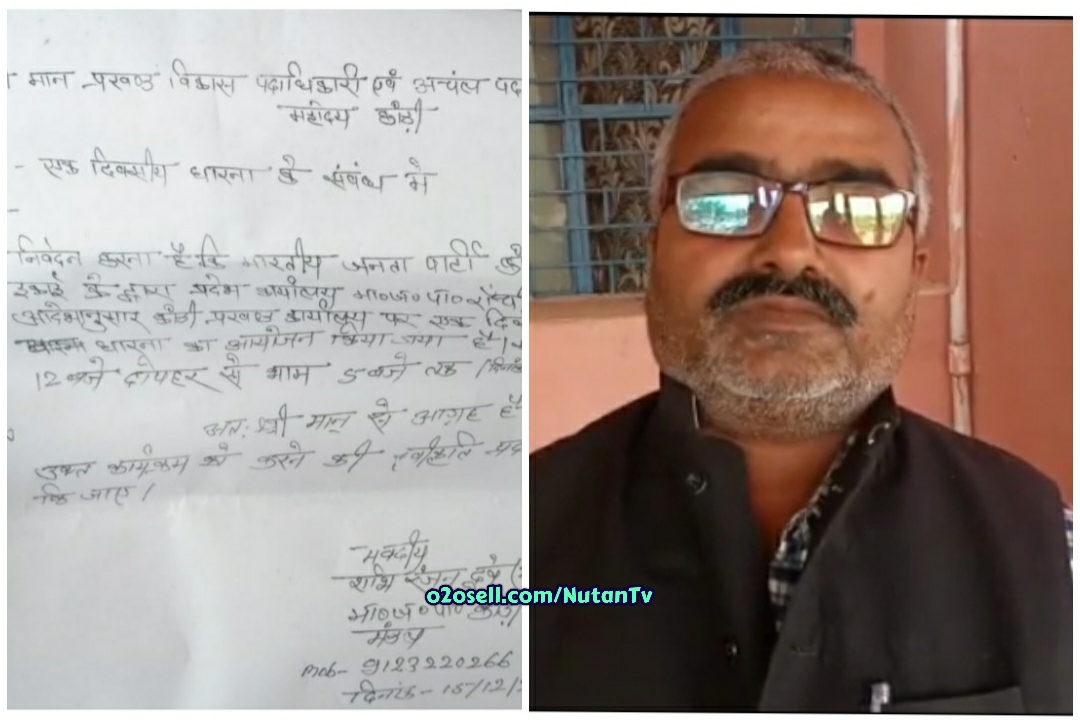 मान प्रखण्ड विकास पदाधिकारी एवं अन्चल पद
महोदय कांडी
- एक दिवसीय धारना के संबंध मे
-
निवेदन करना है कि भारतीय जनता पार्टी के
इकाई के द्वारा प्रदेश कार्यालय भा०ज०पा० राँची
आदेशानुसार कांडी प्रखण्ड कार्यालय पर एक दिव
धारना का आयोजन किया गया है।
12 बजे दोपहर से शाम 5 बजे तक
अतः श्री मान् से आग्रह है
उक्त कार्यक्रम को करने की स्वीकृति
कि जाए।
भवदीय
शशि रंजन दुबे
o2osell.com/NutanTv
भा०ज०पा० कांडी
मंडल
mob- 9123220266
दिनांक- 15/12/